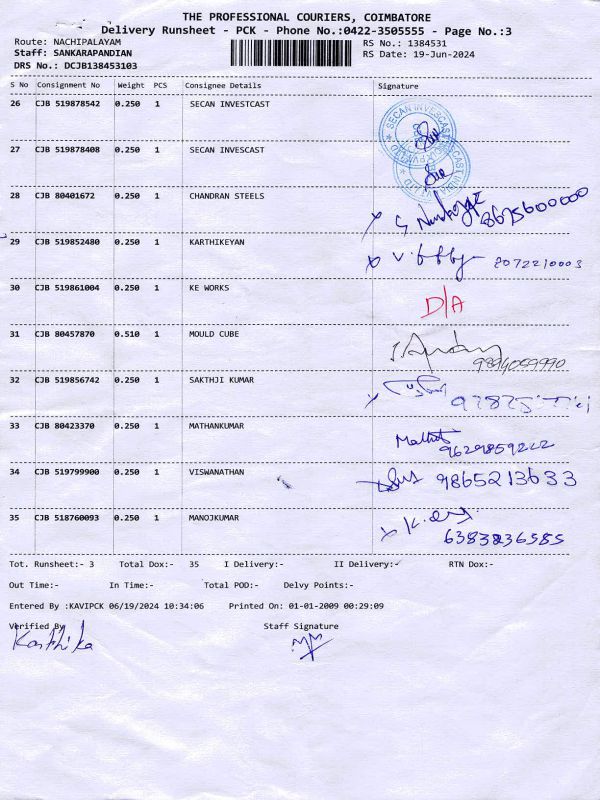 THE PROFESSIONAL COURIERS, COIMBATORE
Delivery Runsheet - PCK - Phone No.:0422-3505555 - Page No.:3
Route: NACHIPALAYAM RS No.: 1384531
Staff: SANKARAPANDIAN RS Date: 19-Jun-2024
DRS No.: DCJB138453103
S No Consignment No Weight PCS Consignee Details Signature
26 CJB 519878542 0.250 1 SECAN INVESTCAST
27 CJB 519878408 0.250 1 SECAN INVESCAST
28 CJB 80401672 0.250 1 CHANDRAN STEELS 8675600000
29 CJB 519852480 0.250 1 KARTHIKEYAN 8072210003
30 CJB 519861004 0.250 1 KE WORKS D/A
31 CJB 80457870 0.510 1 MOULD CUBE
32 CJB 519856742 0.250 1 SAKTHJI KUMAR
33 CJB 80423370 0.250 1 MATHANKUMAR 9629859222
34 CJB 519799900 0.250 1 VISWANATHAN 9865213633
35 CJB 518760093 0.250 1 MANOJKUMAR 6383236585
Tot. Runsheet:- 3 Total Dox:- 35 I Delivery:- II Delivery:- RTN Dox:-
Out Time:- In Time:- Total POD:- Delvy Points:-
Entered By :KAVIPCK 06/19/2024 10:34:06 Printed On : 01-01-2009 00:29:09
Verified By Staff Signature
Karthika